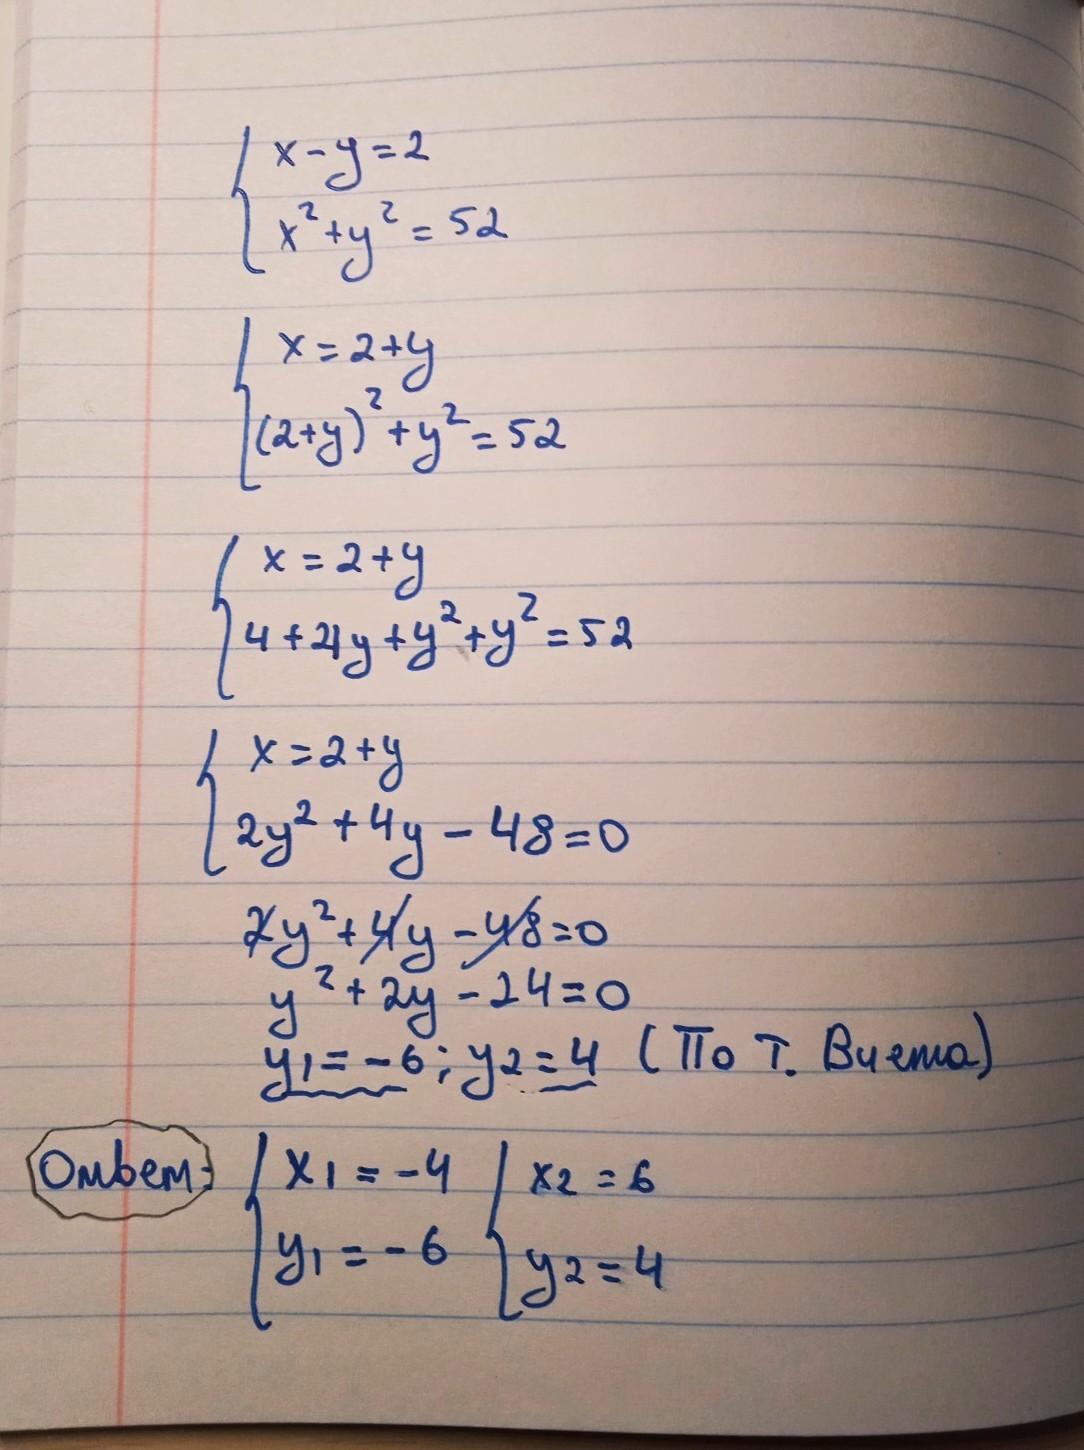 x-y=2
x²+y²=52
x=2+y
(2+y)²+y²=52
x=2+y
4+4y+y²+y²=52
x=2+y
2y²+4y-48=0
2y²+4y-48=0
y²+2y-24=0
y₁=-6; y₂=4 (По т. Виета)
Ответ: x₁=-4 x₂=6
y₁=-6 y₂=4